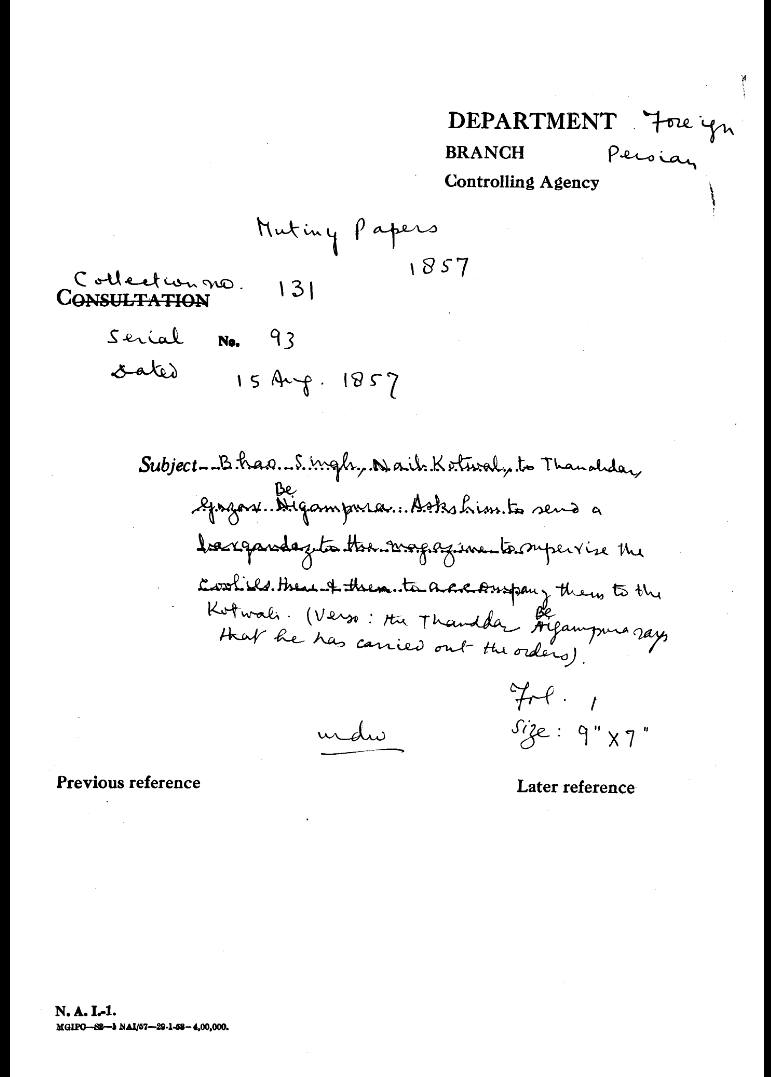 DEPARTMENT Foreign
BRANCH Persian
Controlling Agency
Mutiny Papers
1857
Collection no. 131
CONSULTATION
Serial No. 93
Dated 15 Aug. 1857
Subject Bhao Singh, Naib Kotwal, to Thanahdar,
Be
Guzar Nigampura. Asks him to send a
barqandaz to the magazine to supervise the
coolies there & then to accompany them to the
Kotwali. (Verso: the Thanddar
Be
Nigampura says
that he has carried out the orders).
Fol. 1
urdu
Size: 9" x 7"
Previous reference
Later reference
N. A. I.-1.
MGIPO—S2—3 NAI/57—29-1-58—4,00,000.